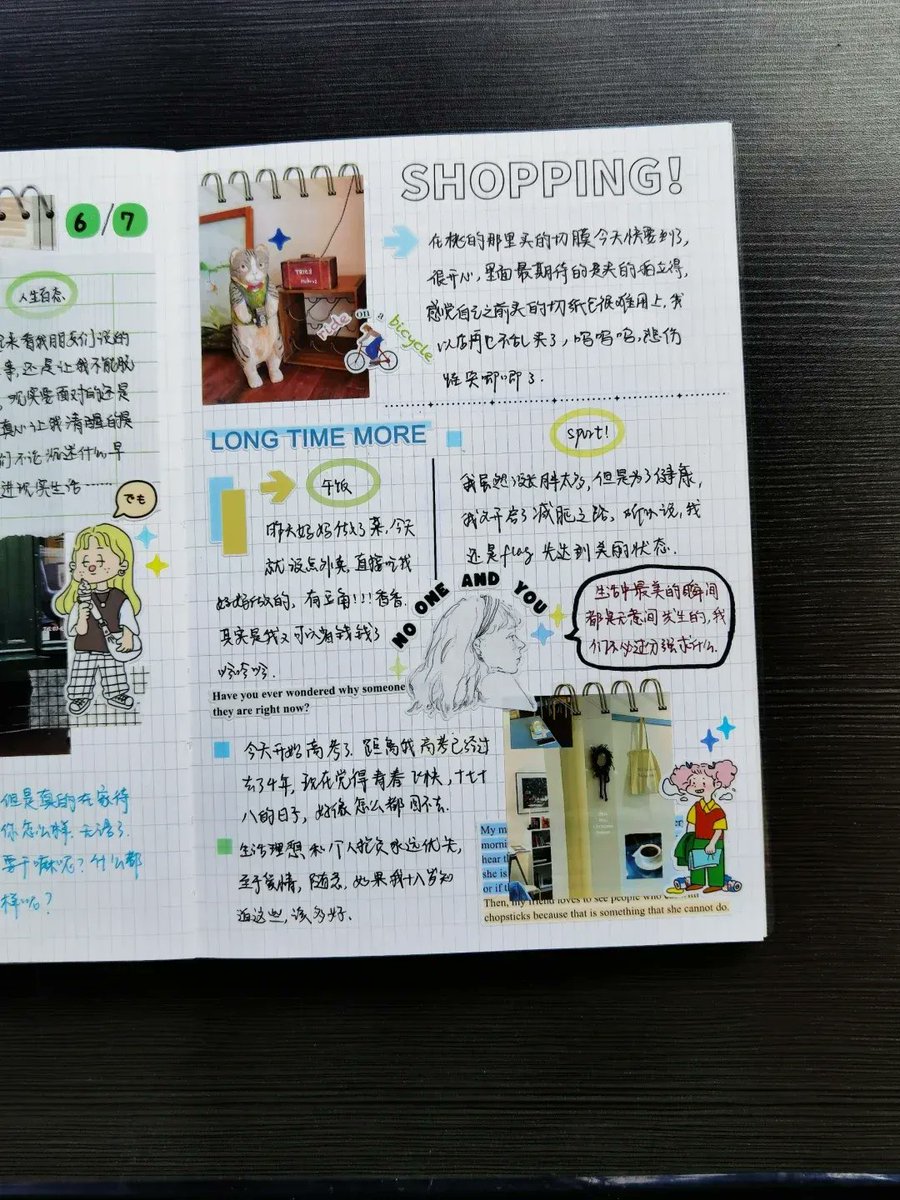 6/7
人生百态
来看我朋友们说的
事,还是让我不能脱
呢实要面对的还是
真心让我清醒自
们不论沉迷什么早
进现实生活……
でも
但是真的在家待
你怎么样 无语了.
要干嘛呢?什么都
样呢?
SHOPPING!
在桃的那里买的切膜今天快要到了,
很开心,里面最期待的是买的拍立得,
感觉自己之前买的切纸也很难用上,我
以后再也不乱买了,呜呜呜,悲伤
TRIEJ
Ride on a bicycle
LONG TIME MORE
午饭
昨天好好做了菜,今天
就没点外卖,直接吃我
好好做的,有豆角!!!香香.
其实是我又可以省钱钱了
哈哈哈.
sport!
我虽然没长胖太多,但是为了健康,
我又开启了减肥之路,听小说,我
还是flag 先达到美的状态.
NO ONE AND YOU
生活中最美的瞬间
都是无意间发生的,我
们不必过分强求什么.
Have you ever wondered why someone
they are right now?
今天开始高考了.距离我高考已经过
去了4年,现在觉得青春飞快,十七十
八的日子,好像怎么都回不去.
生活理想和个人抱负永远优先,
至于爱情,随意,如果我十八岁知
道这些,该多好.
My m
er
mornin
hear th
she is
or if th
Then, my friend loves to see people who eat with
chopsticks because that is something that she cannot do.